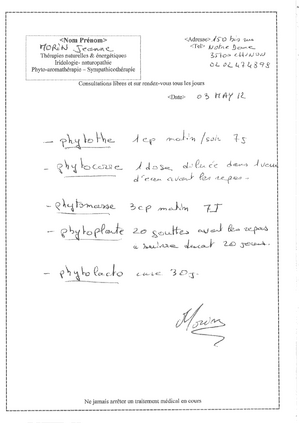 <Nom Prénom>
MORIN Jeanne
Thérapies naturelles & énergétiques
Iridologie- naturopathie
Phyto-aromathérapie – Sympathicothérapie
<Adresse> 150 bis rue
<Tel> Notre Dame
35700
0404474898
Consultations libres et sur rendez-vous tous les jours
<Date> 03 MAY 12
- phytothe 1 cp matin/soir 7j
- phytocure 1 dose diluée dans 1 verre
d'eau avant les repas.
- phytomasse 3 cp matin 7J
- phytoplaste 20 gouttes avant les repas
à suivre durant 20 jours.
- phytolacto cure 30j.
Morin
Ne jamais arrêter un traitement médical en cours